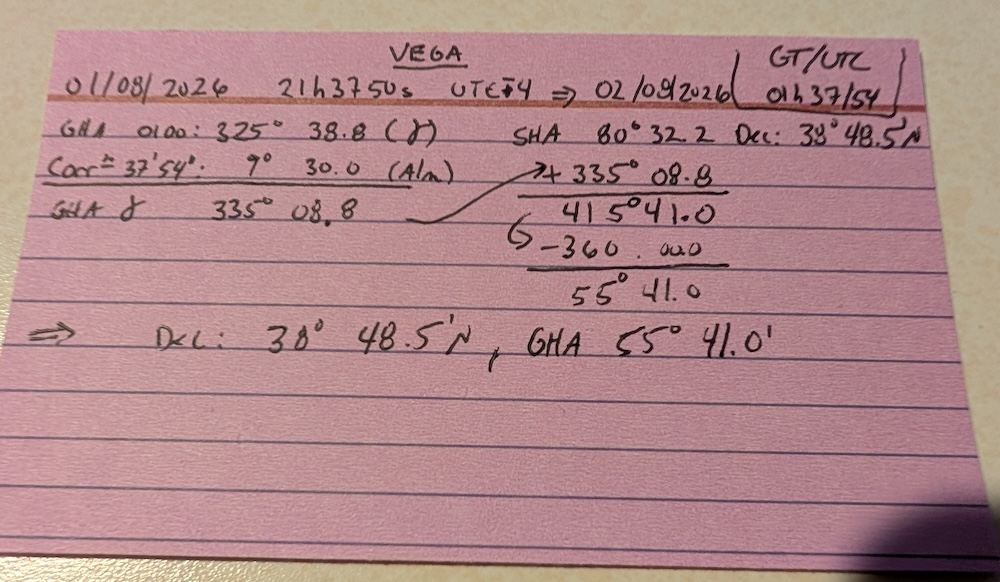 VEGA
01/08/2026 21h37 50s UTC+4 ⇒ 02/08/2026
GT/UTC
01h 37/54
GHA 0100: 325° 38.8 (♈) SHA 80° 32.2 Dec: 38° 48.5' N
Corrⁿ 37'54": 9° 30.0 (Alm) + 335° 08.8
GHA ♈ 335° 08.8 415° 41.0
-360 . 00.0
55° 41.0
⇒ Dec: 38° 48.5' N, GHA 55° 41.0'